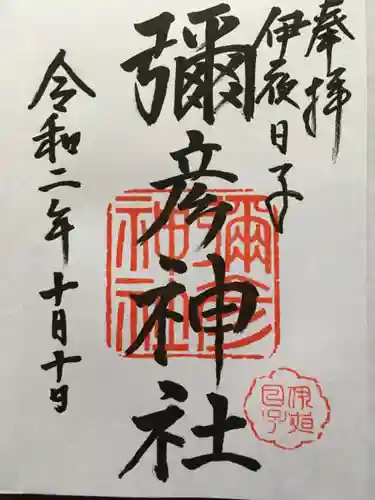 奉拝
伊夜日子
彌彦神社
令和二年十月十日
彌彦
神社